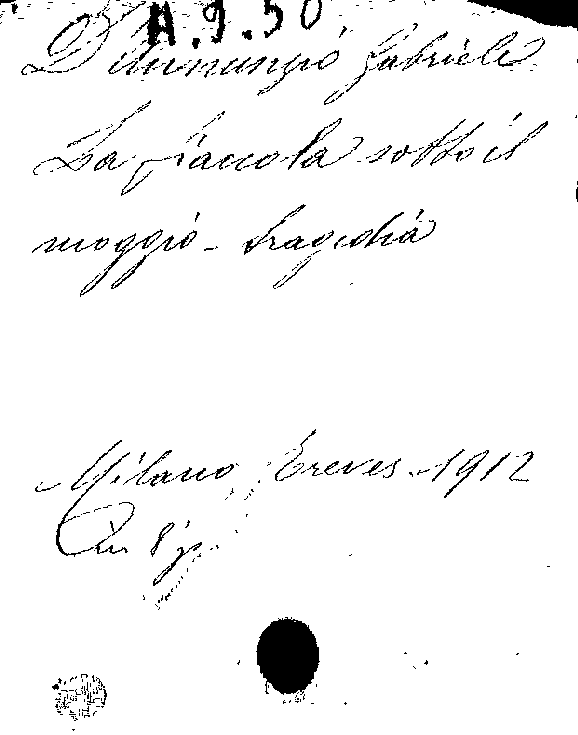 A.9.50
D'Annunzio Gabriele
La fiaccola sotto il
moggio - tragedia
Milano Treves. 1912
In 8° p.